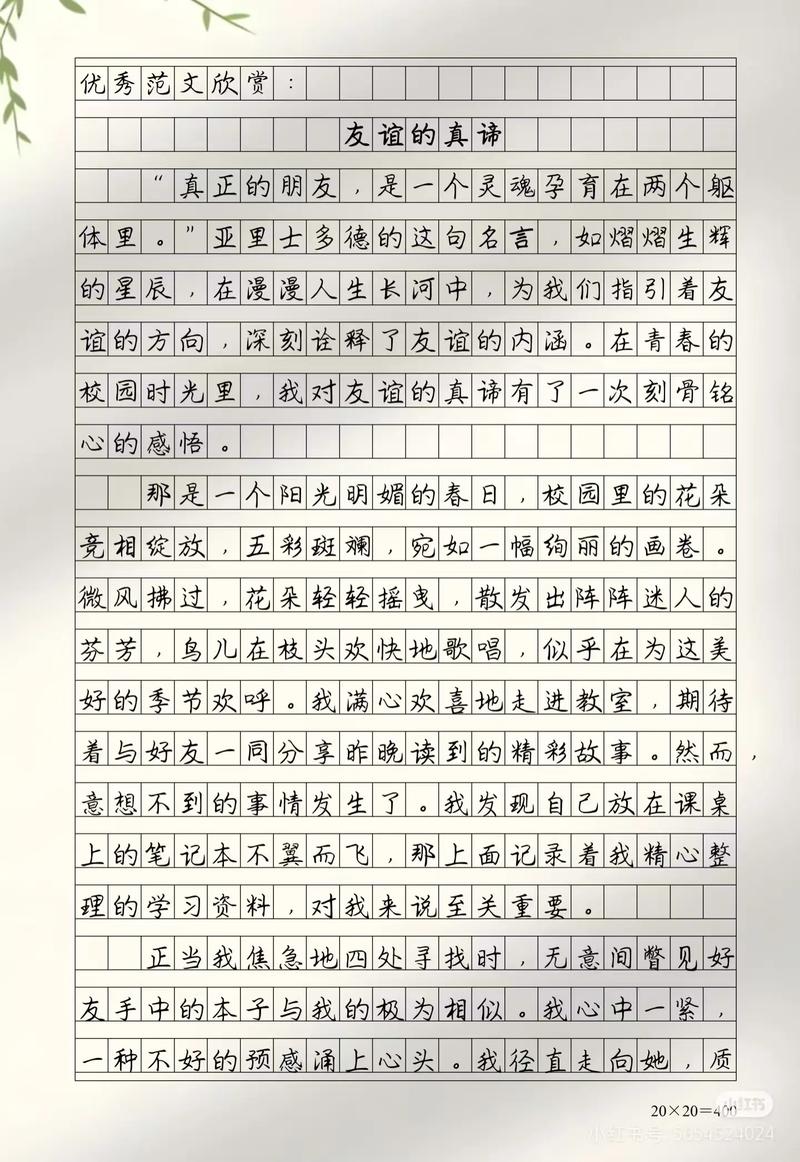 优秀范文欣赏：
友谊的真谛
“真正的朋友，是一个灵魂孕育在两个躯
体里。”亚里士多德的这句名言，如熠熠生辉
的星辰，在漫漫人生长河中，为我们指引着友
谊的方向，深刻诠释了友谊的内涵。在青春的
校园时光里，我对友谊的真谛有了一次刻骨铭
心的感悟。
那是一个阳光明媚的春日，校园里的花朵
竞相绽放，五彩斑斓，宛如一幅绚丽的画卷。
微风拂过，花朵轻轻摇曳，散发出阵阵迷人的
芬芳，鸟儿在枝头欢快地歌唱，似乎在为这美
好的季节欢呼。我满心欢喜地走进教室，期待
着与好友一同分享昨晚读到的精彩故事。然而，
意想不到的事情发生了。我发现自己放在课桌
上的笔记本不翼而飞，那上面记录着我精心整
理的学习资料，对我来说至关重要。
正当我焦急地四处寻找时，无意间瞥见好
友手中的本子与我的极为相似。我心中一紧，
一种不好的预感涌上心头。我径直走向她，质
20×20=400
小红书
小红书号: 5054524024